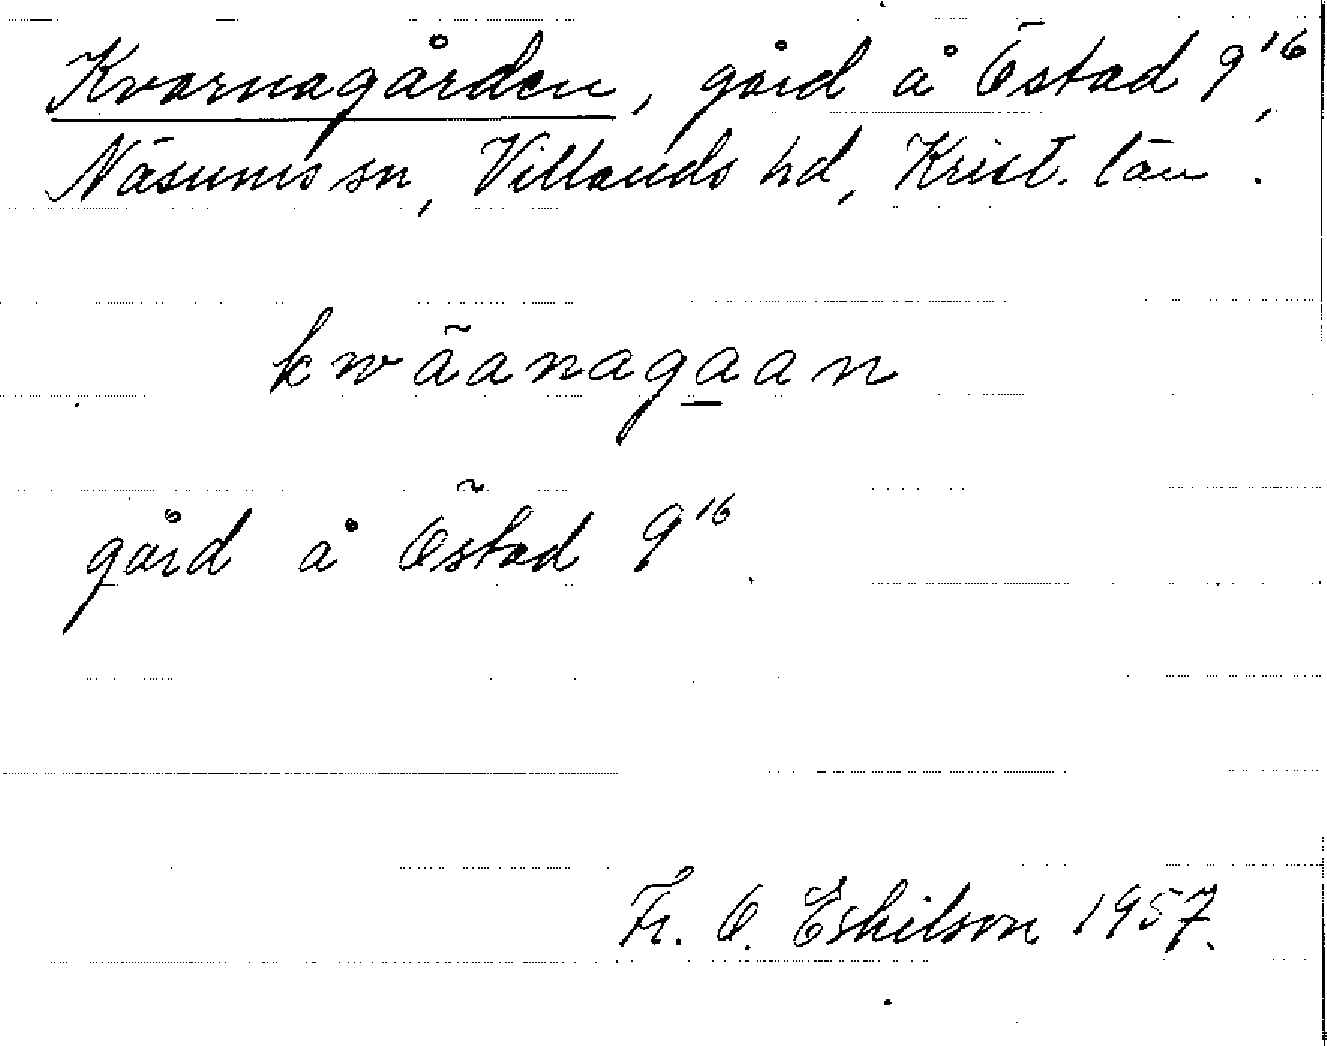 Kvarnagården, gård å Östad 9¹⁶,
Näsums sn, Villands hd, Krist. län.
kwãanaga̲an
gård å Östad 9¹⁶.
Fr. O. Eskilson 1957.